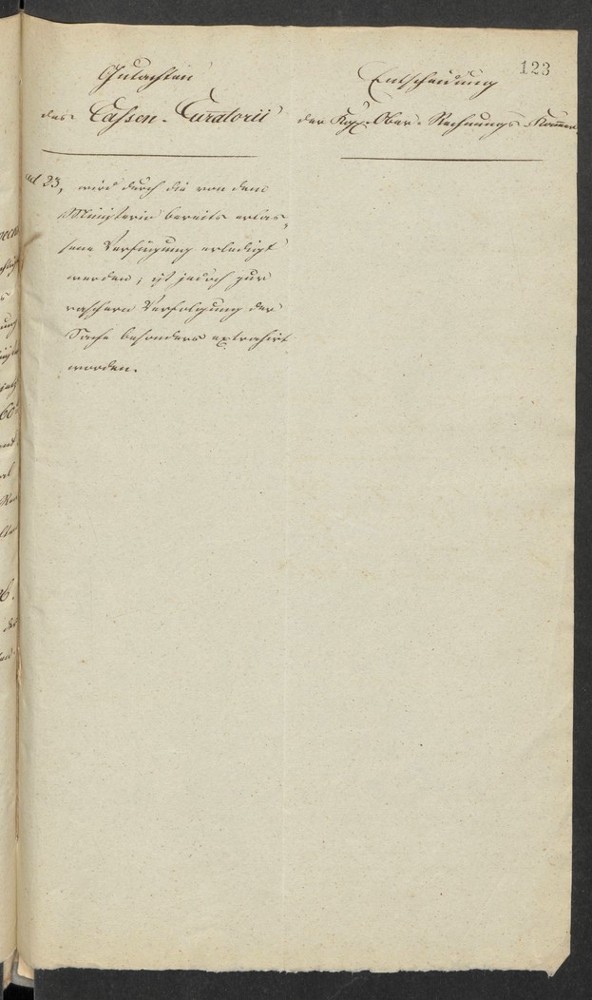 123
Gutachten
des Cassen-Curatorii
Entscheidung
der Kgl. Ober-Rechnungs-Kammer
ad 23, wird durch die von dem
Ministerio bereits erlas¬
sene Verfügung erledigt
werden; ist jedoch zur
raschern Verfolgung der
Sache besonders extrahirt
worden.